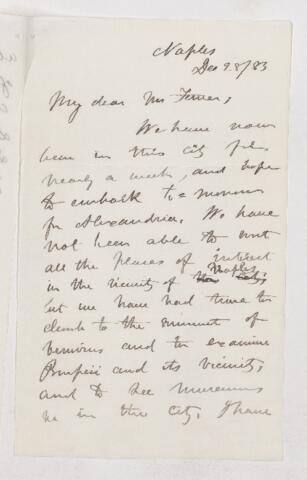 Naples
Dec 28/83
My dear Mr Terner,
We have now
been in this city for
nearly a week, and hope
to embark to-morrow
for Alexandria. We have
not been able to visit
all the places of interest
in the vicinity of Naples;
but we have had time to
climb to the summit of
Vesuvius and to examine
Pompeii and its vicinity,
and to see museums
in the city, I have